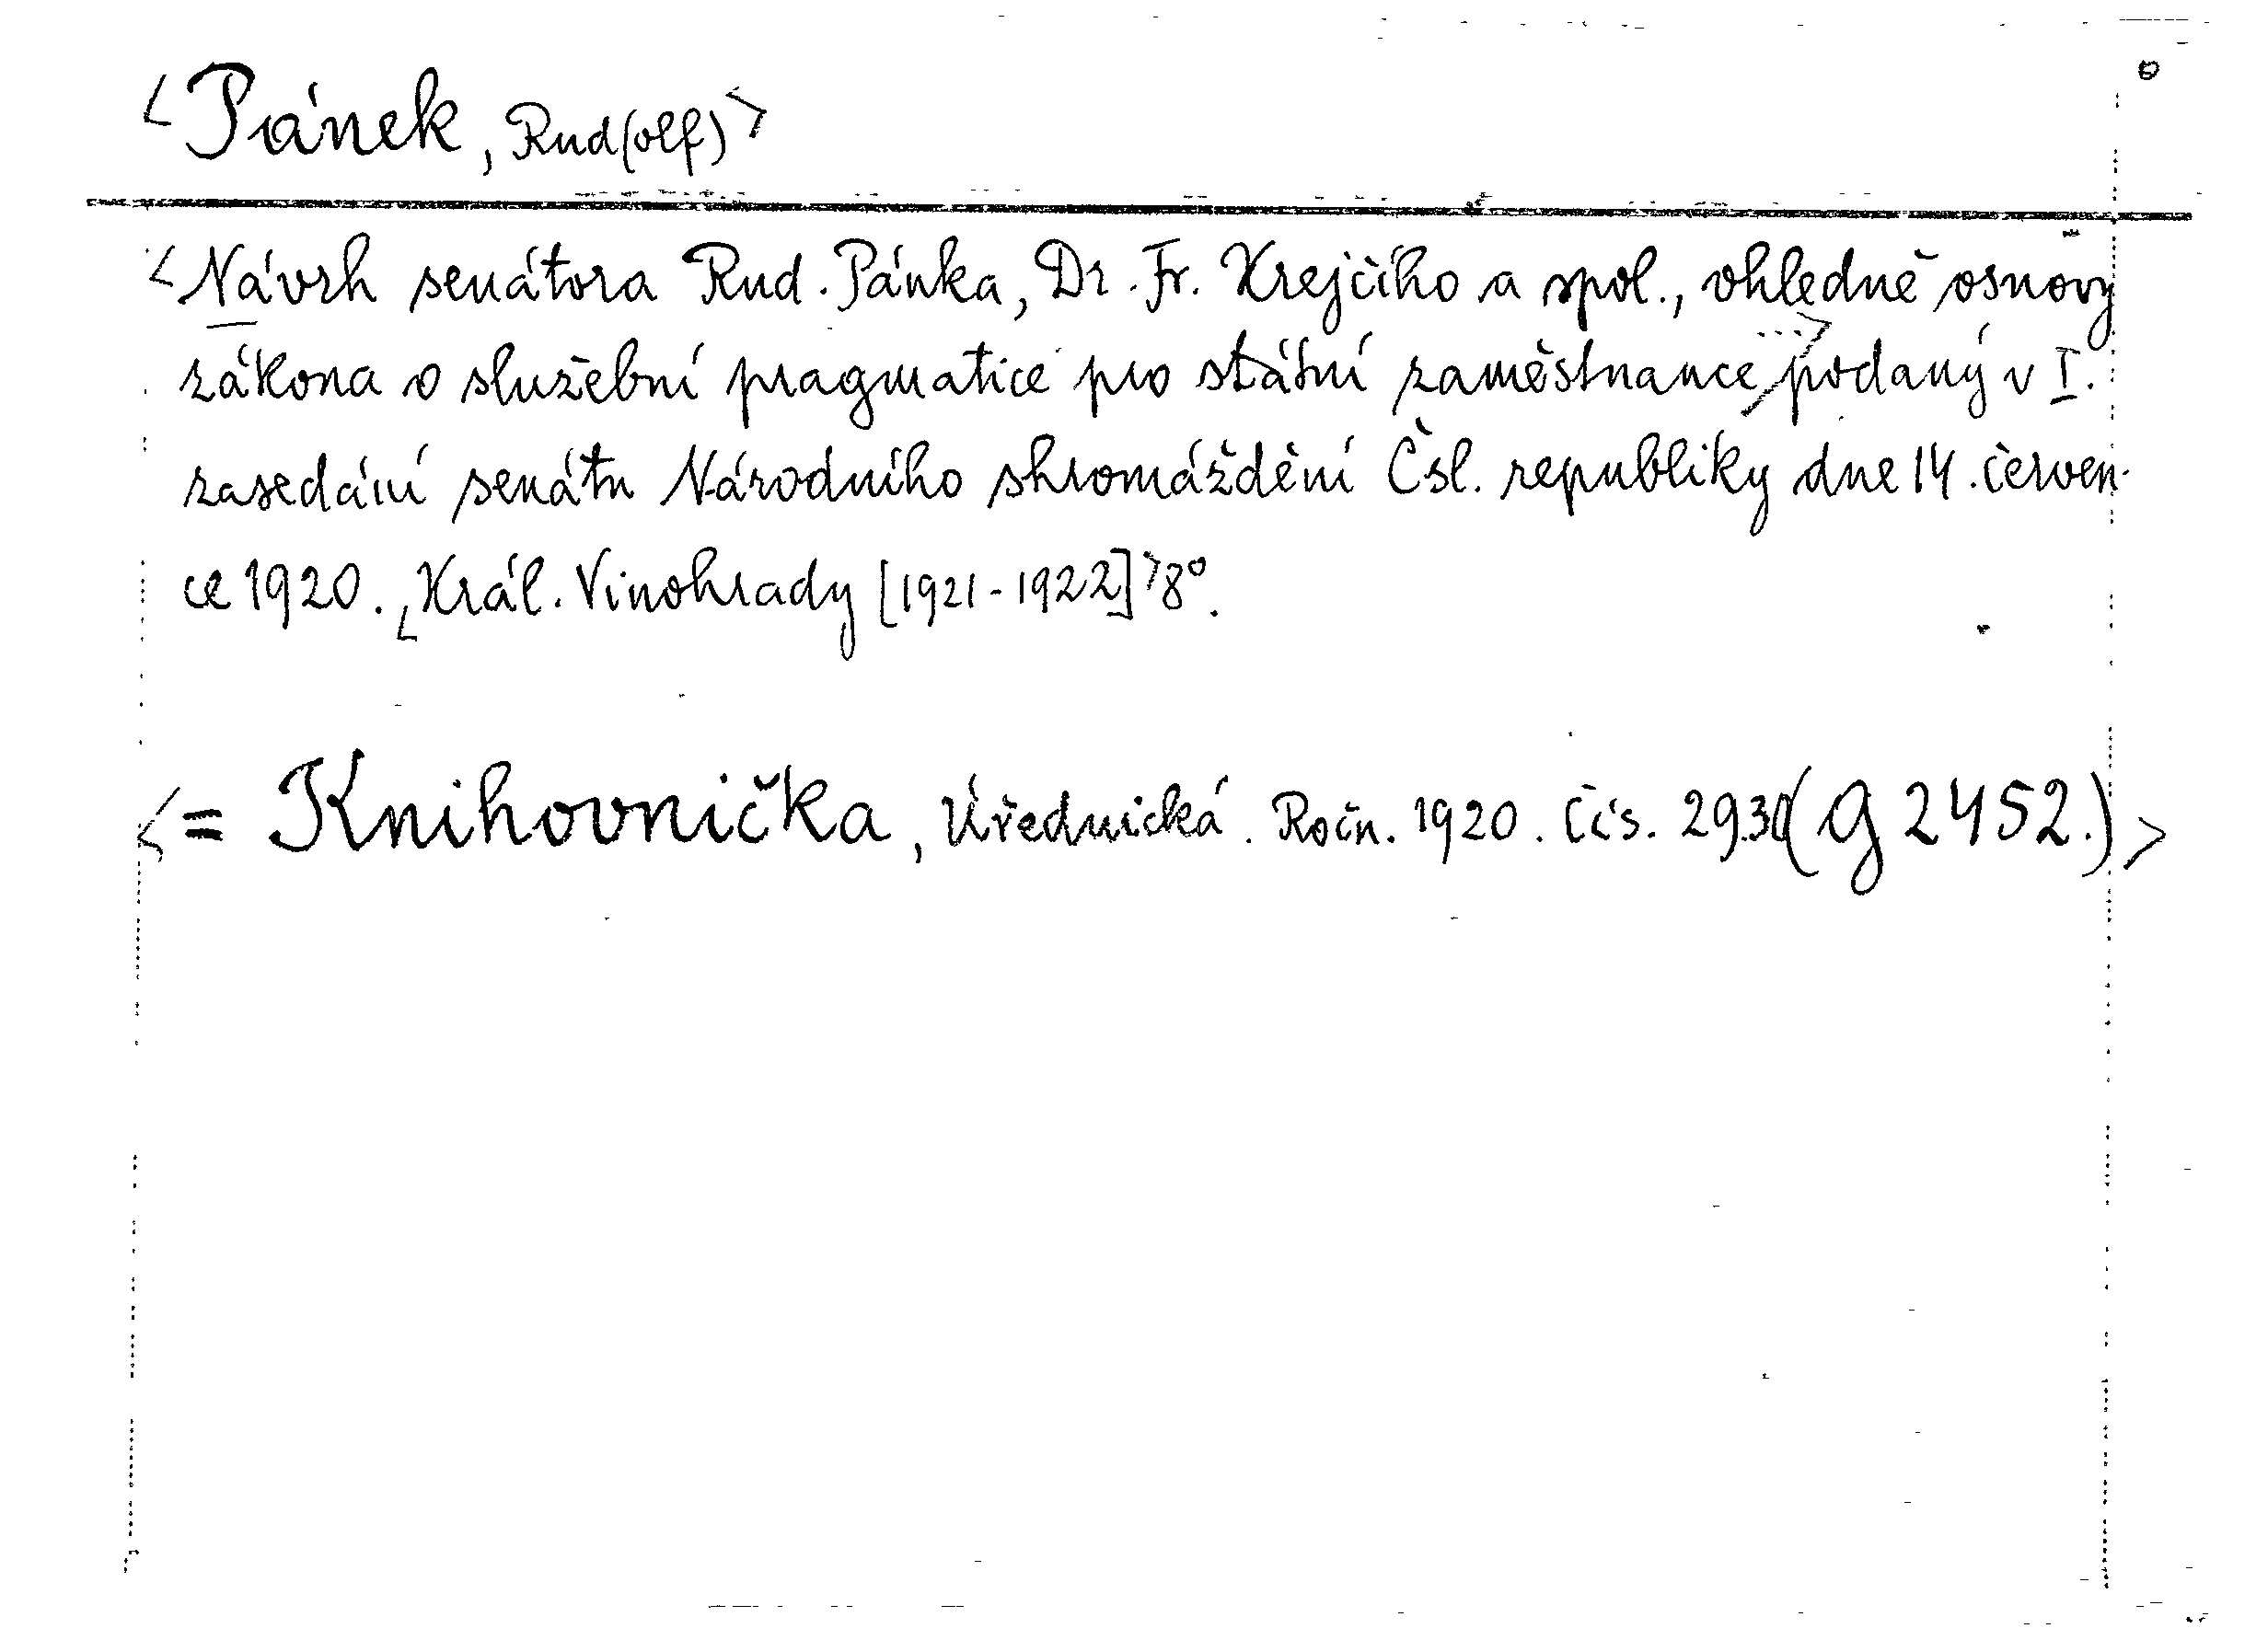 <Pánek, Rud(olf)>
<Návrh senátora Rud. Pánka, Dr. Fr. Krejčího a spol., ohledně osnovy
zákona o služební pragmatice pro státní zaměstnance, ...> podaný v I.
zasedání senátu Národního shromáždění Čsl. republiky dne 14. červen-
ce 1920. <Král. Vinohrady [1921-1922]> 8°.
<= Knihovnička, Úřednická. Ročn. 1920. Čís. 29.30 (g 2452.)>